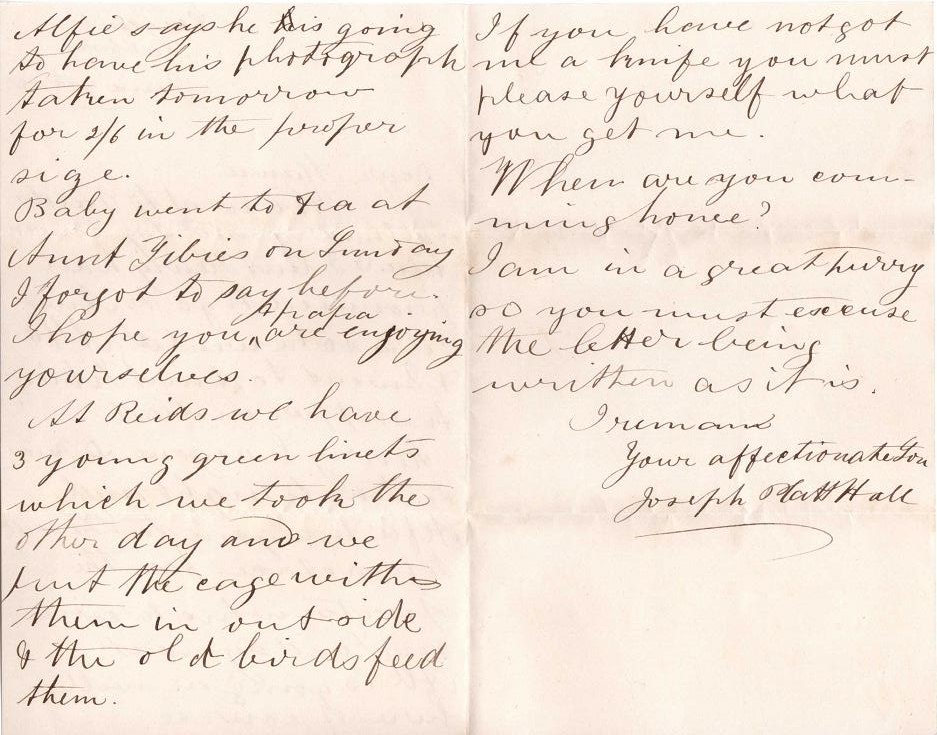 Alfie says he is going
to have his photograph
taken tomorrow
for 2/6 in the proper
size.
Baby went to tea at
Aunt Tibies on Sunday
I forgot to say before.
I hope you & papa are enjoying
yourselves.
At Reids we have
3 young green linets
which we took the
other day and we
put the cage with
them in out side
& the old birds feed
them.
If you have not got
me a knife you must
please yourself what
you get me.
When are you com-
ming home?
I am in a great hurry
so you must excuse
the letter being
written as it is.
I remain
Your affectionate Son
Joseph Platt Hall